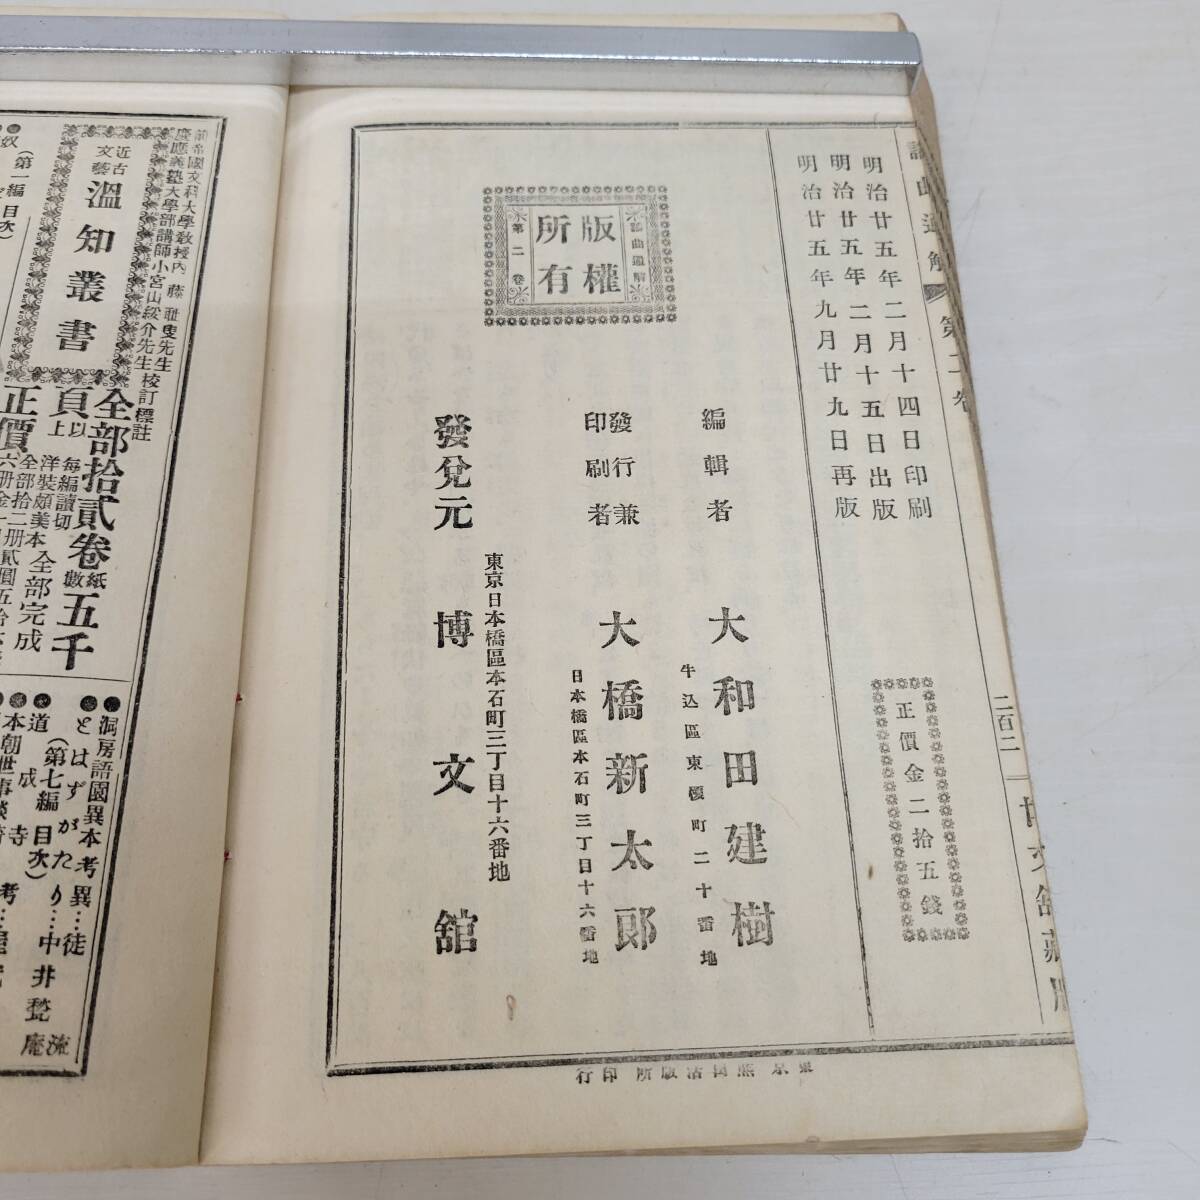 謠曲通解 第二卷
二百二
博文館藏版
明治廿五年二月十四日印刷
明治廿五年二月十五日出版
明治廿五年九月廿九日再版
正價金二拾五錢
謠曲通解
版權
所有
第二卷
編輯者 大和田建樹
牛込區東榎町二十番地
發行兼
印刷者 大橋新太郎
日本橋區本石町三丁目十六番地
東京日本橋區本石町三丁目十六番地
發兌元 博文館
行印 所版活 東京
前帝國文科大學敎授內藤耻叟先生
慶應義塾大學部講師小宮山綏介先生校訂標註
近古
文藝
溫知叢書
全部拾貳卷紙數五千
頁以上
每編讀切
洋裝頗美本全部完成
全部拾二册
正價
(第一編目次)
●洞房語園異本考異…徒流
●とはずがたり…中井甃庵
(第七編目次)
●道成寺考…屋
●本朝世事談